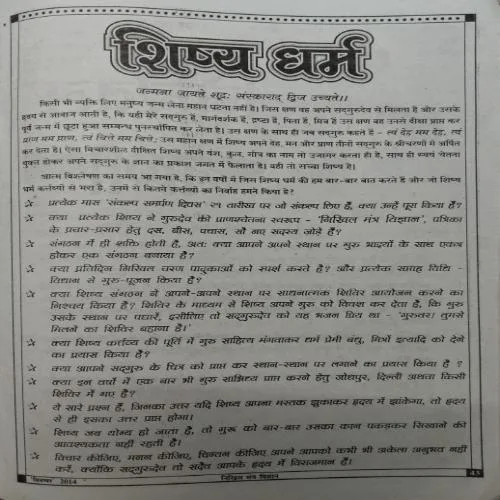 शिष्य धर्म
जन्मना जायते शूद्रः संस्काराद् द्विज उच्यते।।
किसी भी व्यक्ति लिए मनुष्य जन्म लेना महान घटना नहीं है। जिस क्षण वह अपने सद्गुरुदेव से मिलता है और उसके
हृदय से आवाज आती है, कि यही मेरे सद्गुरु हैं, मार्गदर्शक हैं, द्रष्टा हैं, पिता हैं, मित्र हैं उस क्षण वह उनसे दीक्षा प्राप्त कर
पूर्व जन्म में छूटा हुआ सम्बन्ध पुनर्स्थापित कर लेता है। उस क्षण के साथ ही जब सद्गुरु कहते हैं - त्वं देह मम देह, त्वं
प्राण मम प्राण, त्वं चित्त मम चित्त; उस महान क्षण में शिष्य अपने देह, मन और प्राण तीनों सद्गुरु के श्रीचरणों में अर्पित
कर देता है। ऐसा विचारशील दीक्षित शिष्य अपने वंश, कुल, गोत्र का नाम तो उजागर करता ही है, साथ ही स्वयं चेतना
युक्त होकर अपने सद्गुरु के ज्ञान का प्रकाश जगत में फैलाता है। वही तो सच्चा शिष्य है।
आत्म विश्लेषण का समय आ गया है, कि इन वर्षों में जिस शिष्य धर्म की हम बार-बार बात करते हैं और जो शिष्य
धर्म कर्तव्यों से भरा है, उनमें से कितने कर्तव्यों का निर्वाह हमने किया है?
☆ प्रत्येक मास 'संकल्प समर्पण दिवस' २१ तारीख पर जो संकल्प लिए हैं, क्या उन्हें पूरा किया है?
☆ क्या प्रत्येक शिष्य ने गुरुदेव की प्राणश्चेतना स्वरूप - 'निखिल मंत्र विज्ञान', पत्रिका
के प्रचार-प्रसार हेतु दस, बीस, पचास, सौ नए सदस्य जोड़े हैं?
☆ संगठन में ही शक्ति होती है, अतः क्या आपने अपने स्थान पर गुरु भाइयों के साथ एकत्र
होकर एक संगठन बनाया है?
☆ क्या प्रतिदिन निखिल चरण पादुकाओं को स्पर्श करते हैं? और प्रत्येक सप्ताह विधि -
विधान से गुरु-पूजन किया है?
☆ क्या शिष्य संगठन ने अपने-अपने स्थान पर साधनात्मक शिविर आयोजन करने का
निश्चय किया है? शिविर के माध्यम से शिष्य अपने गुरु को विवश कर देता है, कि गुरु
उसके स्थान पर पधारें, इसीलिए तो सद्गुरुदेव को यह भजन प्रिय था - 'गुरुवर! तुमसे
मिलने का शिविर बहाना है।'
☆ क्या शिष्य कर्तव्य की पूर्ति में गुरु साहित्य मंगवाकर धर्म प्रेमी बंधु, मित्रों इत्यादि को देने
का प्रयास किया है?
☆ क्या आपने सद्गुरु के चित्र को प्राप्त कर स्थान-स्थान पर लगाने का प्रयास किया है ?
☆ क्या इन वर्षों में एक बार भी गुरु सान्निध्य प्राप्त करने हेतु जोधपुर, दिल्ली अथवा किसी
शिविर में गए हैं?
☆ ये सारे प्रश्न हैं, जिनका उत्तर यदि शिष्य अपना मस्तक झुकाकर हृदय में झांकेगा, तो हृदय
से ही इसका उत्तर प्राप्त होगा।
☆ शिष्य जब योग्य हो जाता है, तो गुरु को बार-बार उसका कान पकड़कर सिखाने की
आवश्यकता नहीं रहती है।
☆ विचार कीजिए, मनन कीजिए, चिन्तन कीजिए अपने आपको कभी भी अकेला अनुभव नहीं
करें, क्योंकि सद्गुरुदेव तो सदैव आपके हृदय में विराजमान हैं।
दिसम्बर 2014
निखिल मंत्र विज्ञान
43